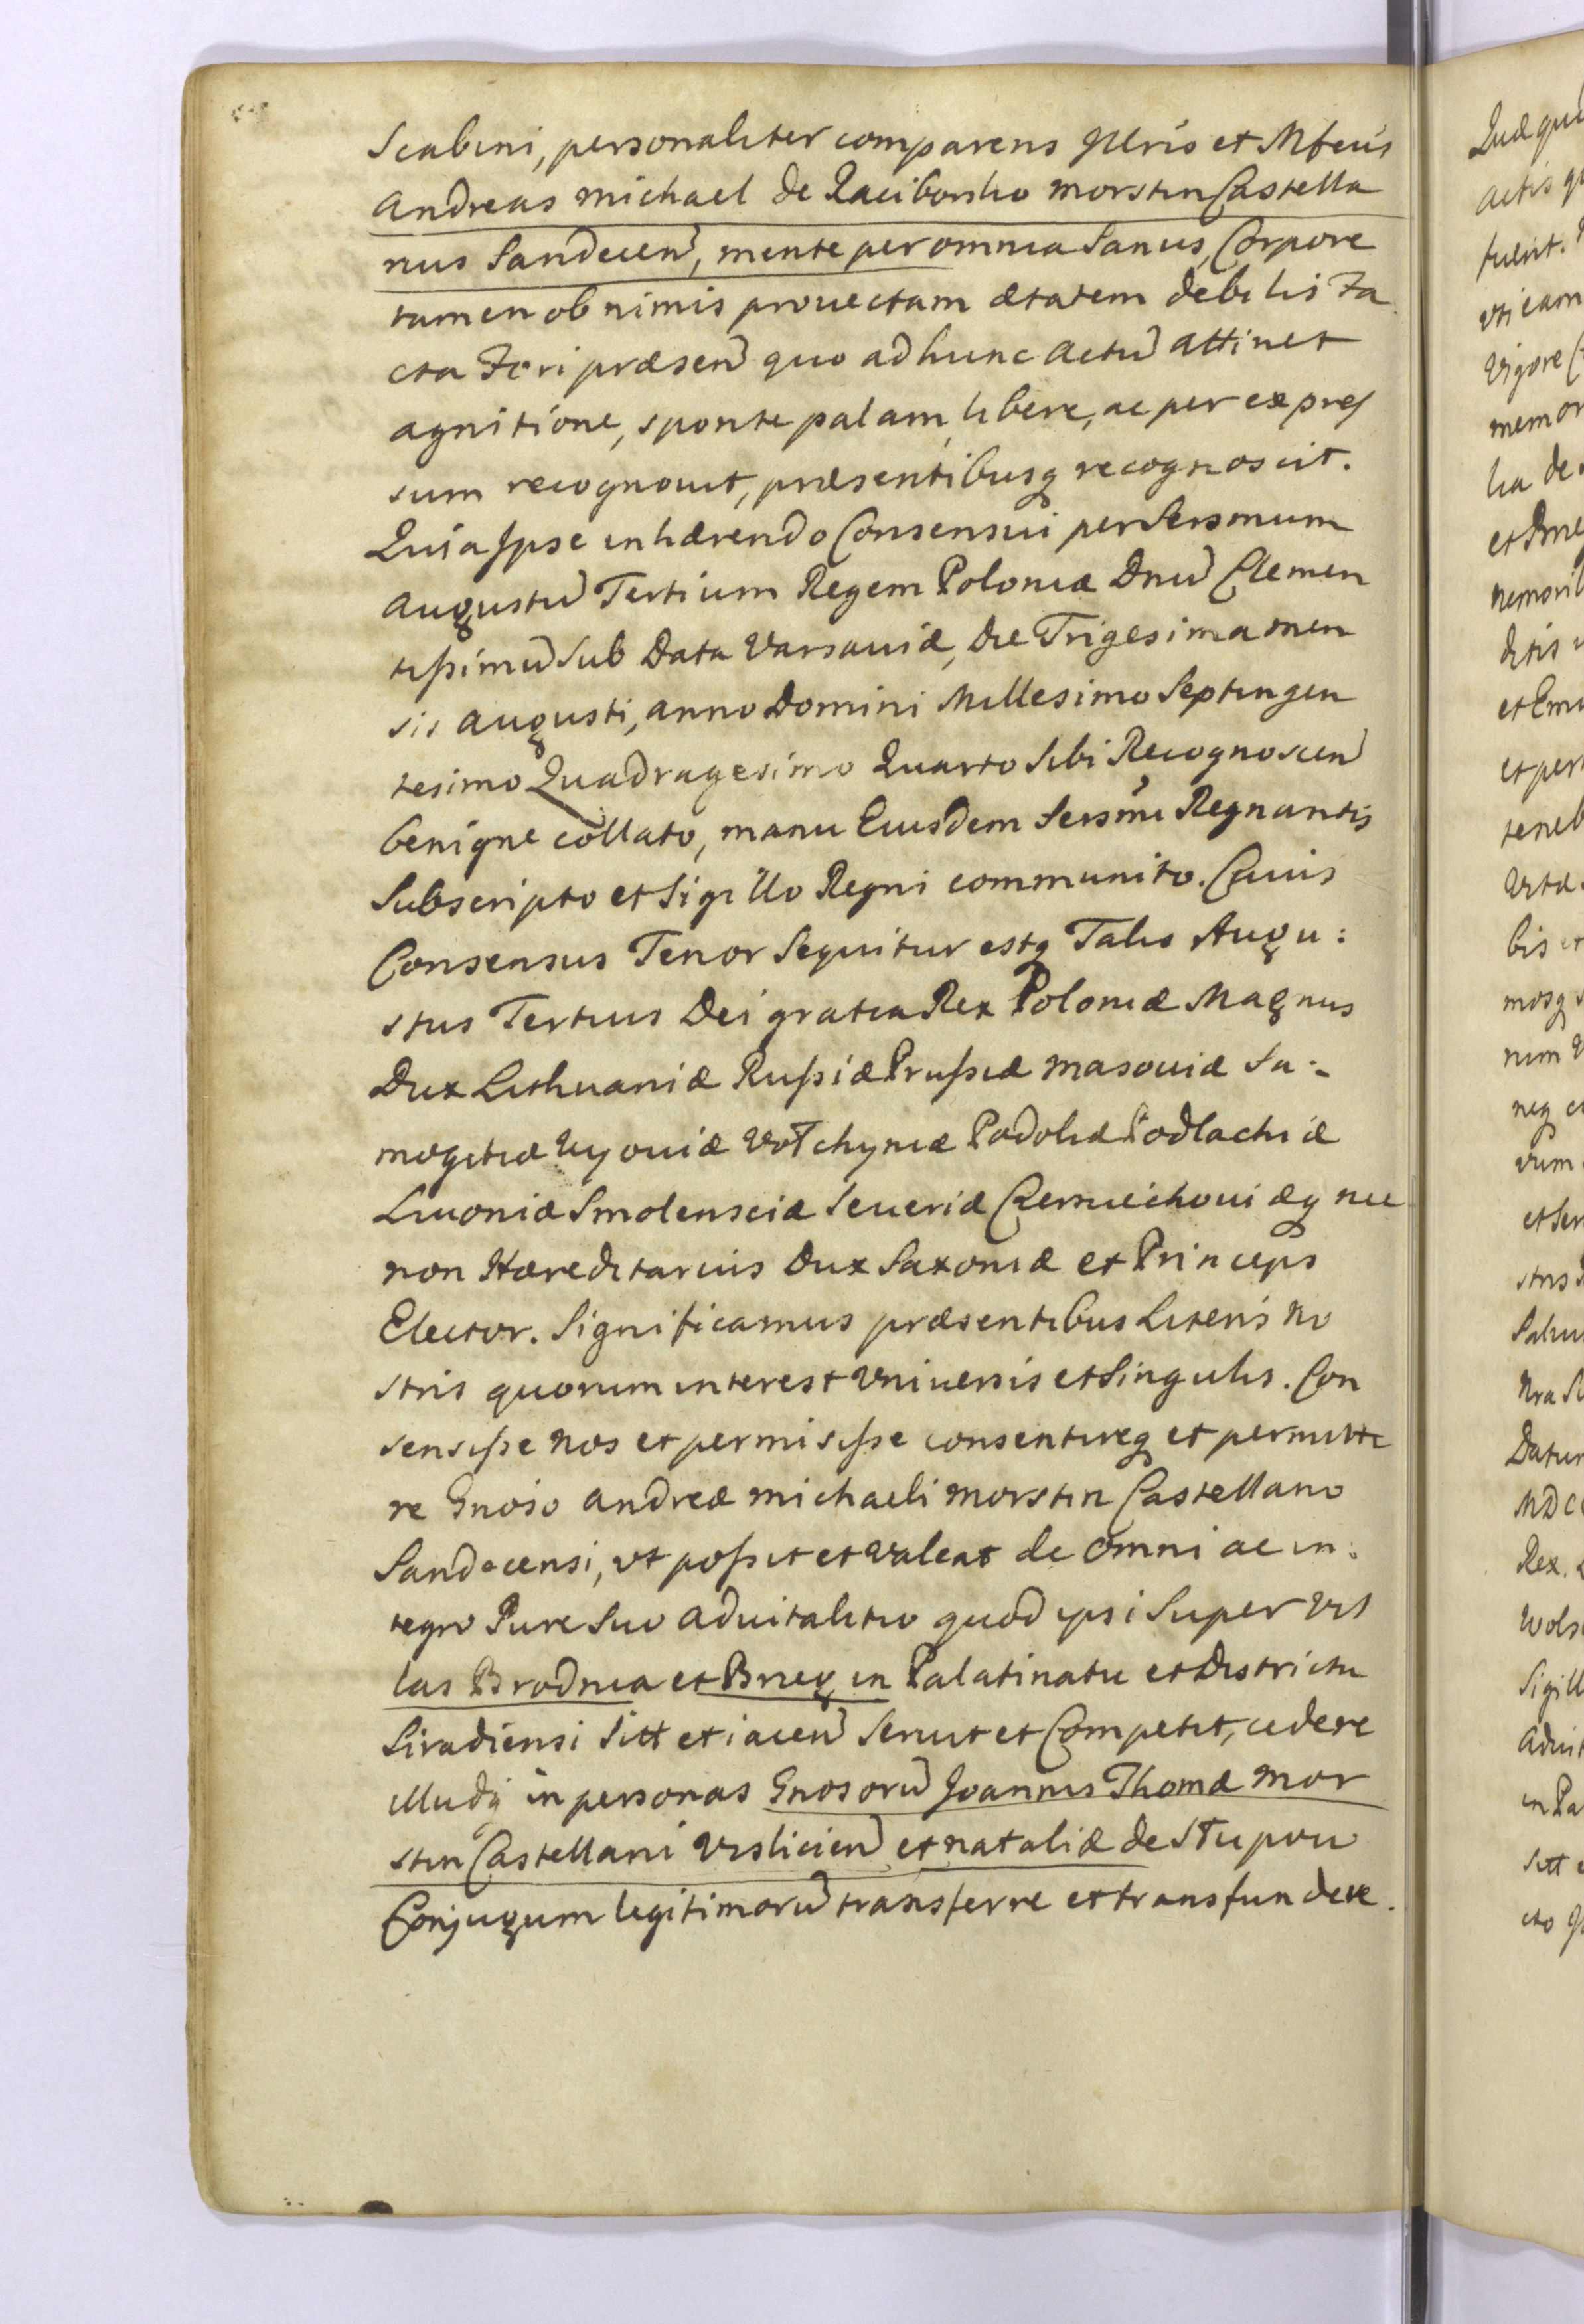 Scabini, personaliter comparens Illris et Mfcus
Andreas Michael de Raciborsko Morstin Castella
nus Sandecen, mente per omnia Sanus, Corpore
tamen ob nimis prouectam ætatem debilis Fa
cta Fori præsen quo ad hunc Actu attinet
agnitione, sponte palam, libere, ac per expres
sum recognouit, præsentibusq recognoscit.
Quia Ipse inhærendo Consensui per Sersmum
Augustu Tertium Regem Poloniæ Dnu Clemen
tißimu Sub Data Varsauiæ, Die Trigesima men
sis Augusti, Anno Domini Millesimo Septingen
tesimo Quadragesimo Quarto Sibi Recognoscen
benigne collato, manu Eiusdem Sersmi Regnantis
Subscripto et Sigillo Regni communito. Cuius
Consensus Tenor Sequitur estq Talis Augu:
stus Tertius Dei gratia Rex Poloniæ Magnus
Dux Lithuaniæ Rußiæ Prußiæ Masouiæ Sa:
mogitiæ Kijouiæ Vołhyniæ Podoliæ Podlachiæ
Liuoniæ Smolensciæ Seueriæ Czerniechouiæq nec
non Hæreditarius Dux Saxoniæ et Princeps
Elector. Significamus præsentibus Literis No
stris quorum interest Vniuersis et Singulis. Con
sensiße Nos et permisiße consentireq et permitte
re Gnoso Andreæ Michaeli Morstin Castellano
Sandecensi, vt poßit et Valeat de Omni ac in:
tegro Iure Suo Aduitalitio quod ipsi Super Vil
las Brodnia et Brzeg in Palatinatu et Districtu
Siradiensi Sitt et iacen Seruit et Competit, cedere
illudq in personas Gnosoru Joannis Thomæ Mor
stin Castellani Vislicien et Nataliæ de Słupow
Conjugum legitimoru transferre et transfundere.